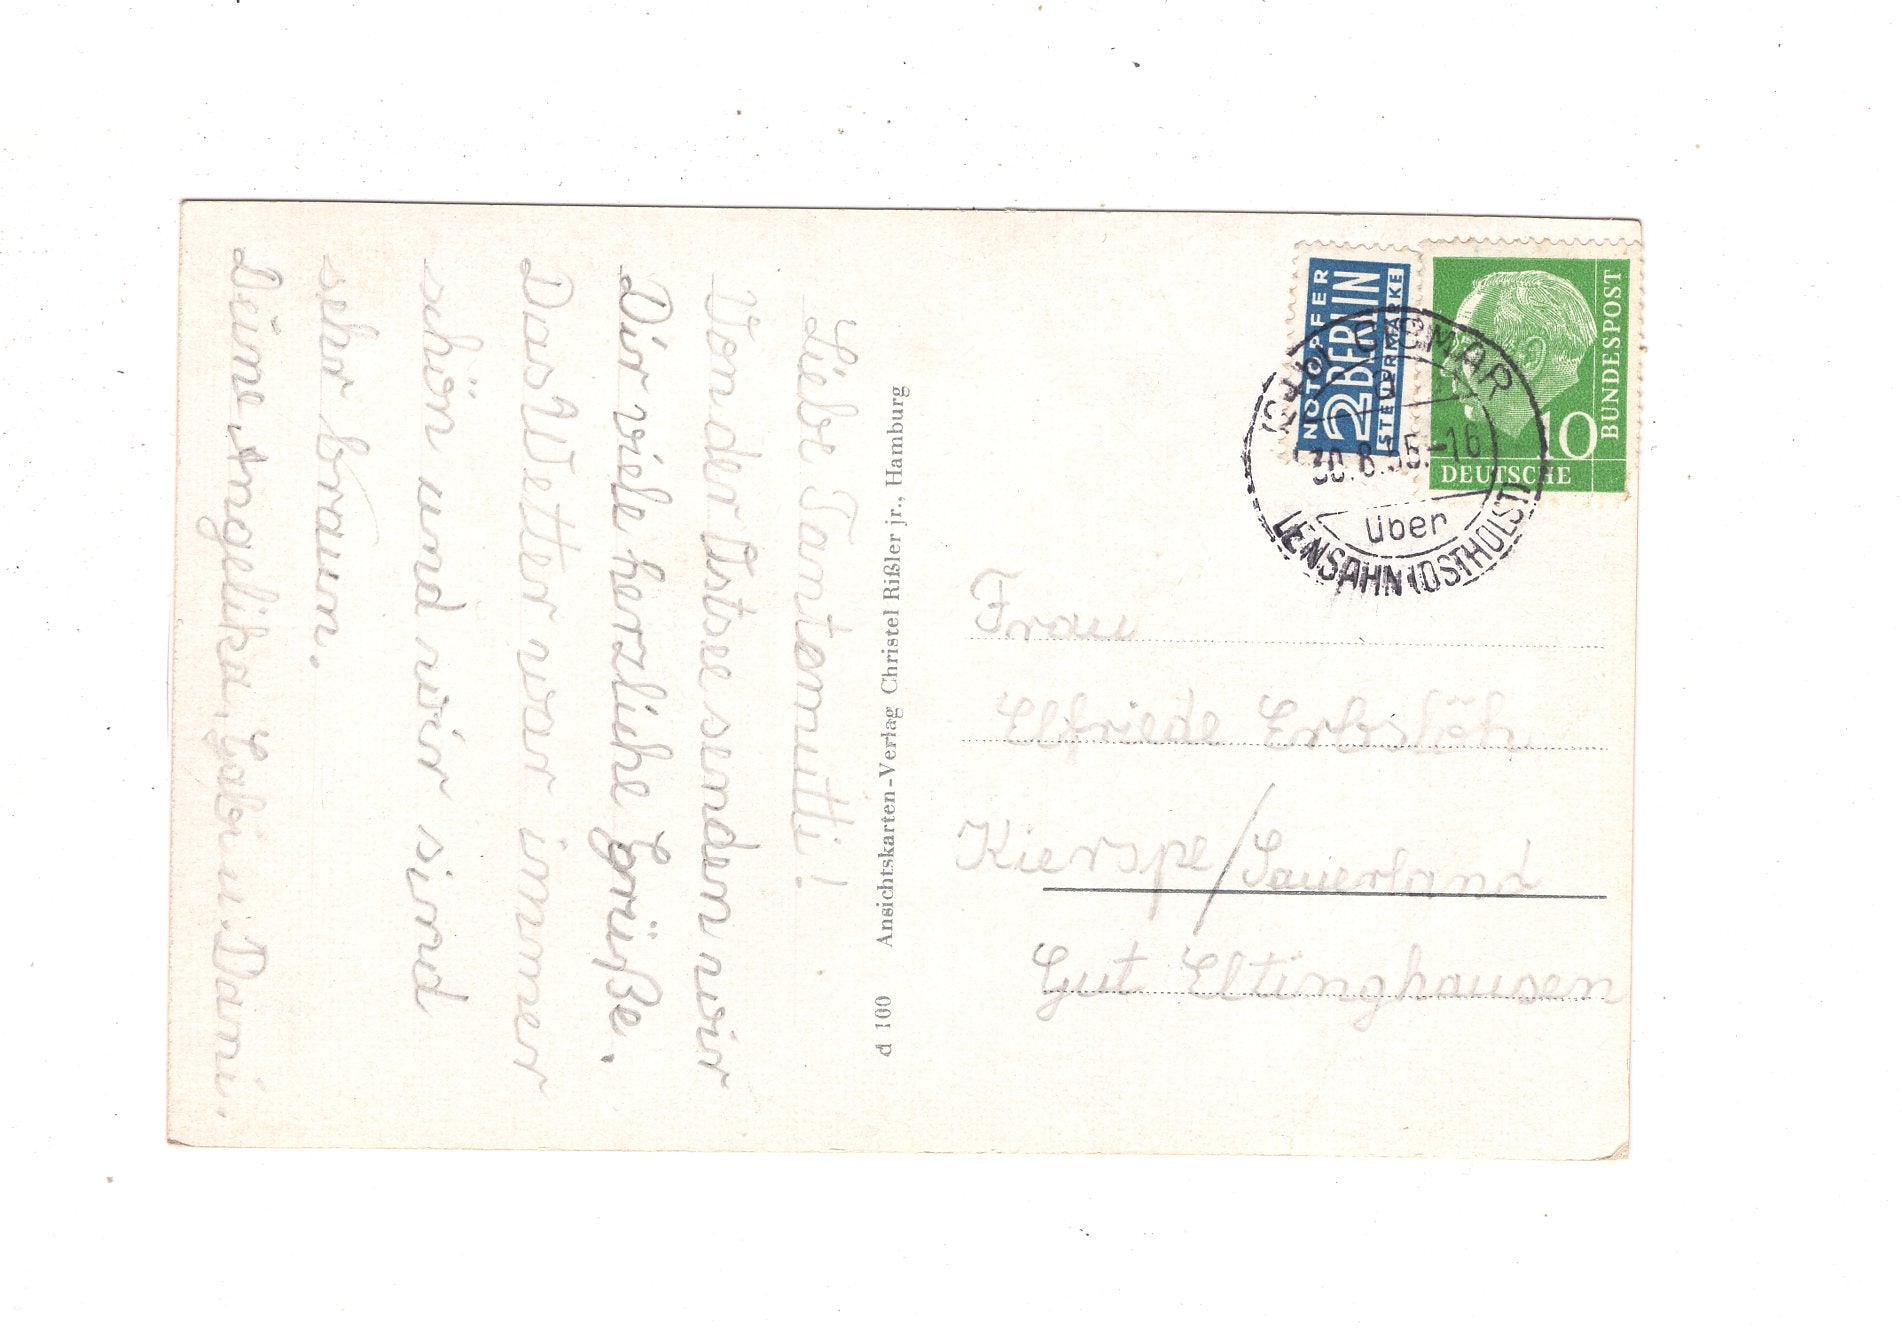 Liebe Tantemutti!
Von der Ostsee senden wir
Dir viele herzliche Grüße.
Das Wetter war immer
schön und wir sind
sehr braun.
Deine Angelika, Gabi u. Dani.
d 100 Ansichtskarten-Verlag Christel Rißler jr., Hamburg
NOTOPFER
2 BERLIN
STEUERMARKE
DEUTSCHE
BUNDESPOST
10
CISMAR
a
30.8.55.-16
über
LENSAHN (OSTHOLST)
Frau
Elfriede Erbslöh
Kierspe/Sauerland
Gut Eltinghausen